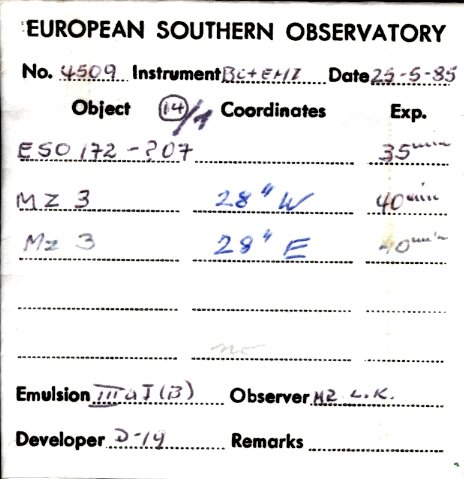 EUROPEAN SOUTHERN OBSERVATORY
No. 4509 Instrument BC+EMI Date 25-5-85
Object 14/1 Coordinates Exp.
ESO 172-?07 35min
MZ 3 28" W 40min
Mz 3 28" E 40min
no
Emulsion IIIaJ(B) Observer HZ L.K.
Developer D-19 Remarks